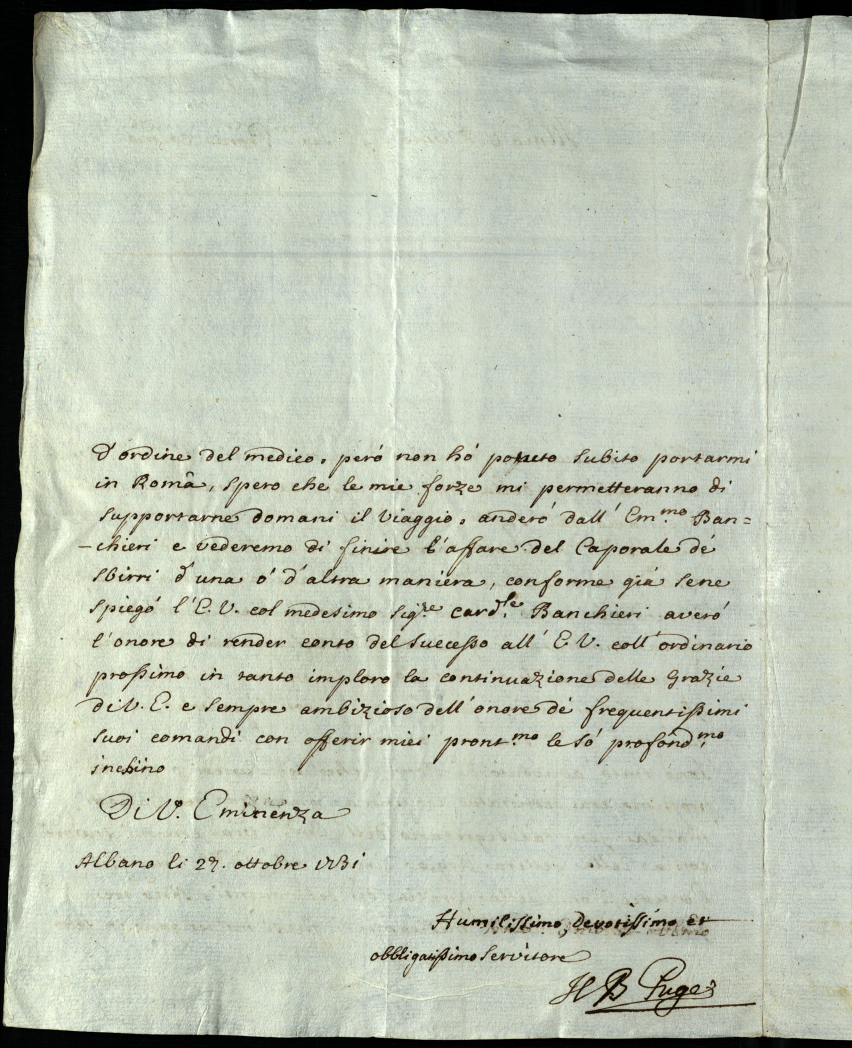 d'ordine del medico, però non hò potuto subito portarmi
in Româ, spero che le mie forze mi permetteranno di
supportarne domani il Viaggio, anderò dall' Em.mo Ban=
-chieri e vederemo di finire l'affare del Caporale de
sbirri d'una ò d'altra maniera, conforme già sene
spiegò l'E.V. col medesimo sig.re card.le Banchieri averò
l'onore di render conto del successo all' E.V. coll' ordinario
prossimo in tanto imploro la continuazione delle Grazie
di V.E. e sempre ambizioso dell'onore de frequentissimi
suoi comandi con offerir miei pront.mo le fò profond.mo
inchino
Di V.ª Eminenza
Albano li 27. ottobre 1731
Humilissimo, Devotissimo et
obbligatissimo servitore